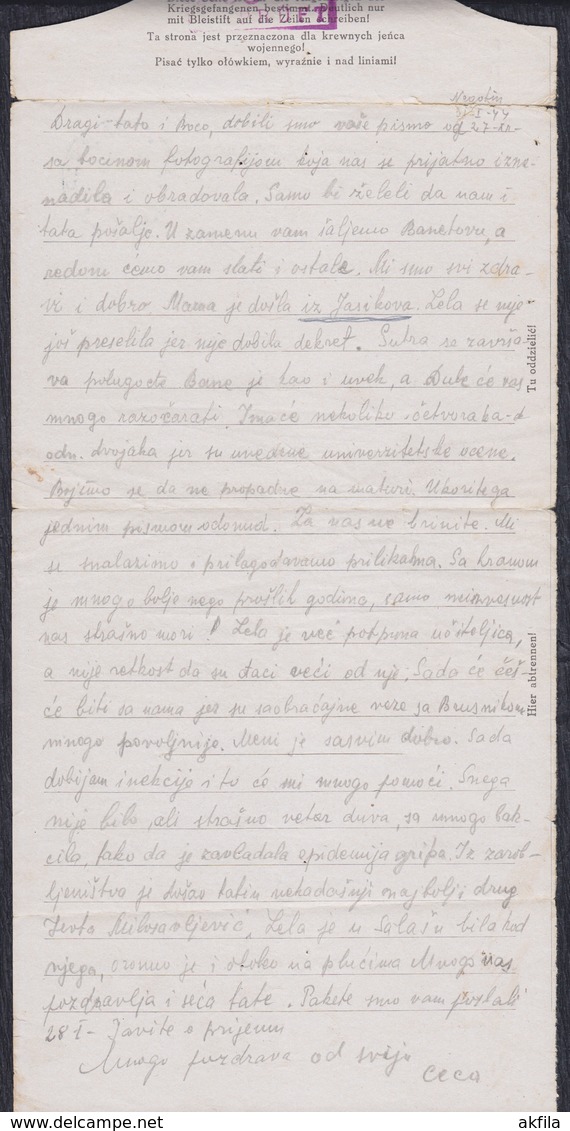 Kriegsgefangenen bestimmt, deutlich nur
mit Bleistift auf die Zeilen schreiben!
Ta strona jest przeznaczona dla krewnych jeńca
wojennego!
Pisać tylko ołówkiem, wyraźnie i nad liniami!
Negotin
31-I-44
Dragi tata i Boco, dobili smo vaše pismo od 27-XII-
sa bocinom fotografijom koja nas se prijatno izne-
nadila i obradovala. Samo bi želeli da nam i
tata pošalje. U zamenu vam šaljemo Banetovu, a
redom ćemo vam slati i ostale. Mi smo svi zdra-
vi i dobro, Mama je došla iz Jasikova. Lela se nije
još preselila jer nije dobila dekret. Sutra se završa-
va polugođe Bane je kao i uvek, a Dule će vas
mnogo razočarati. Imaće nekoliko četvoraka-
odn. dvojaka jer su uvedene univerzitetske ocene.
Bojimo se da ne propadne na maturi. Ukorite ga
jednim pismom odonud. Za nas ne brinite. Mi
se snalazimo i prilagođavamo prilikama. Sa hranom
je mnogo bolje nego prošlih godina, samo neizvesnost
nas strašno mori! Lela je već potpuna učiteljica,
a nije retkost da su đaci veći od nje. Sada će češ-
će biti sa nama jer su saobraćajne veze sa Brusnikom
mnogo povoljnije. Meni je sasvim dobro. Sada
dobijam inekcije i to će mi mnogo pomoći. Snega
nije bilo, ali strašno vetar duva, sa mnogo bak-
cila, tako da je zavladala epidemija gripa. Iz zarob-
ljeništva je došao tatin nekadašnji najbolji drug
Jevta Milosavljević, Lela je u Salašu bila kod
njega, oronuo je i oteko na plućima Mnogo vas
pozdravlja i seća tate. Pakete smo vam poslali
28 I- Javite o prijemu
Mnogo pozdrava od svoje
Ceca
Tu oddzielić!
Hier abtrennen!